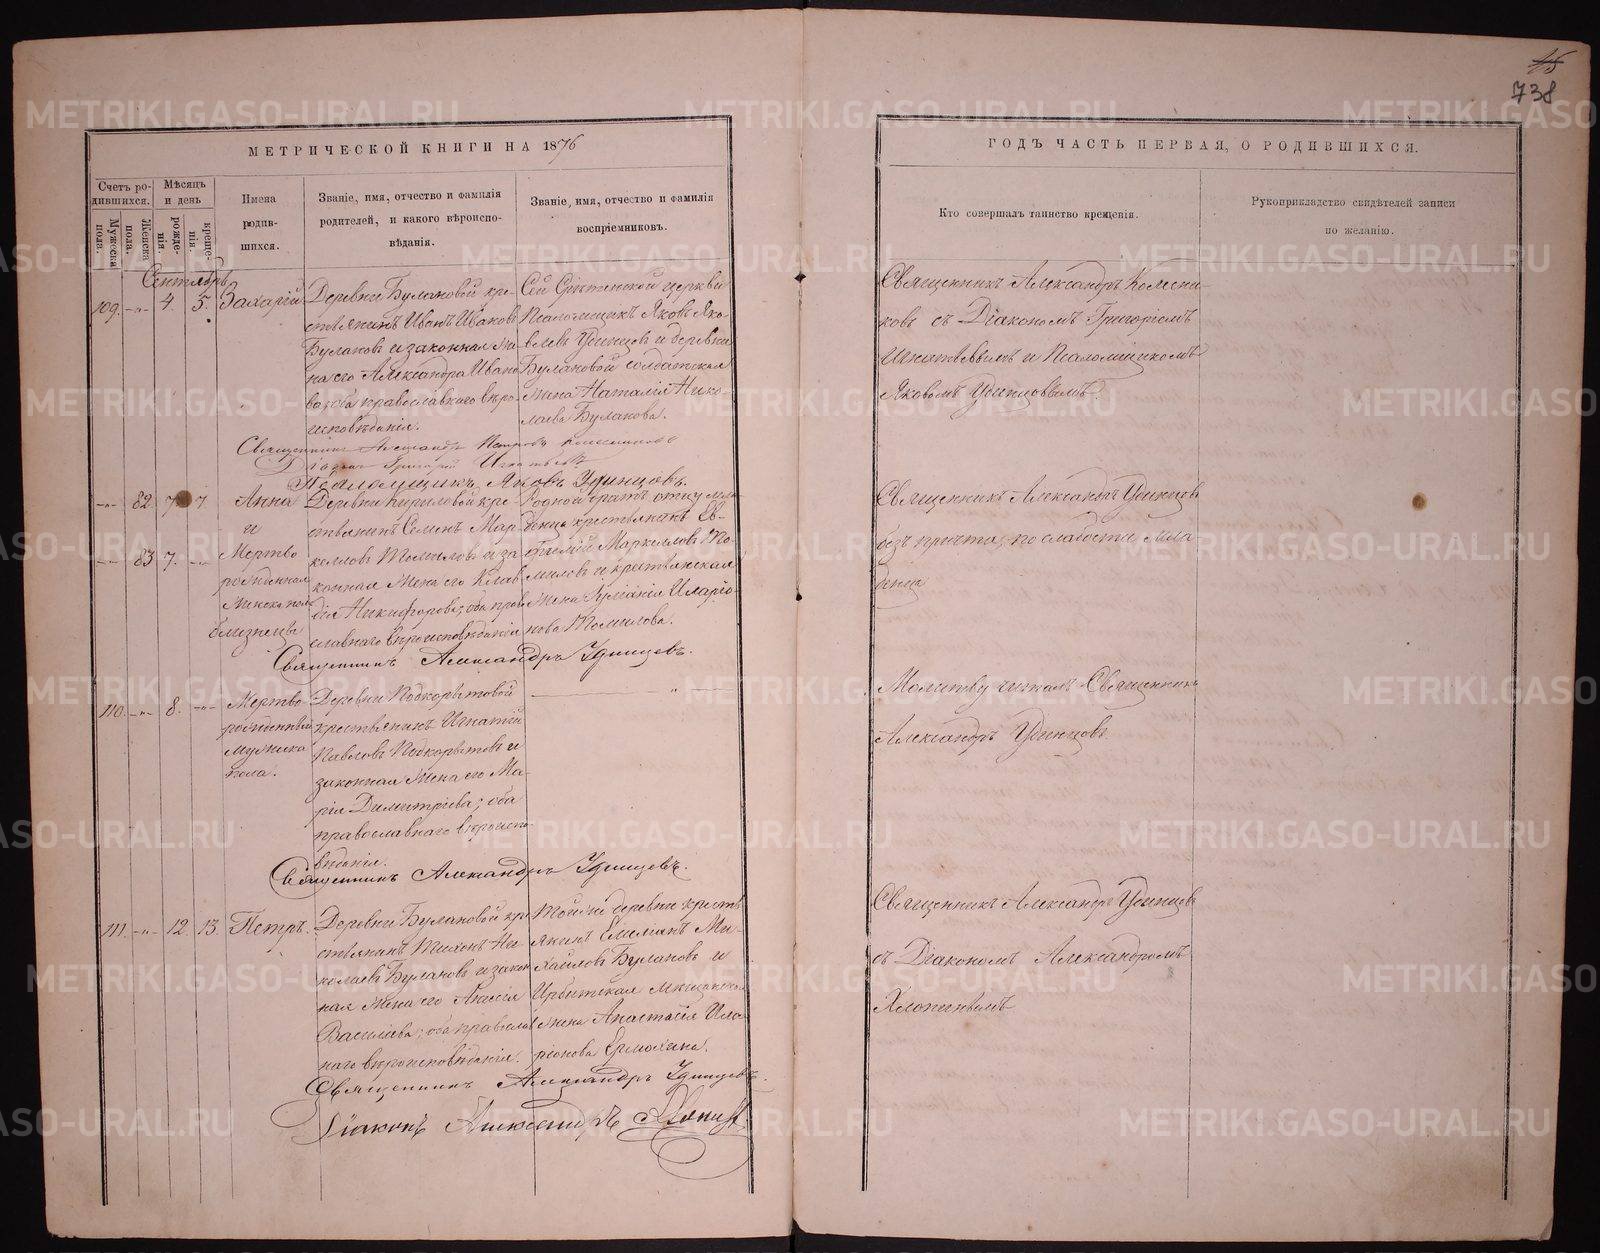 15
738
МЕТРИЧЕСКОЙ КНИГИ НА 1876
ГОДЪ ЧАСТЬ ПЕРВАЯ, О РОДИВШИХСЯ.
Счетъ ро-
дившихся.
Мужеска
пола.
Женска
пола.
Мѣсяцъ
и день
рожде-
нія.
креще-
нія.
Имена
родив-
шихся.
Званіе, имя, отчество и фамилія
родителей, и какого вѣроиспо-
вѣданія.
Званіе, имя, отчество и фамилія
воспріемниковъ.
Кто совершалъ таинство крещенія.
Рукоприкладство свидѣтелей записи
по желанію.
Сентябрь
109. -"- 4. 5. Захарій
Деревни Булановой кре-
стьянинъ Иванъ Ивановъ
Булановъ и законная же-
на его Александра Ивано
ва; оба православнаго вѣро
исповѣданія.
Сей Срѣтенской церкви
Псаломщикъ Яковъ Яко-
влевъ Удинцевъ и деревни
Булановой солдатская
жена Наталія Нико-
лаева Буланова.
Священникъ Александръ Колесни-
ковъ съ Діакономъ Григоріемъ
Игнатьевымъ и Псаломщикомъ
Яковомъ Удинцовымъ.
Священникъ Александръ Петровъ Колесниковъ
Діаконъ Григорій Игнатьевъ
Псаломщикъ Яковъ Удинцовъ.
-"- 82 7 7 Анна
и
-"- 83 7. -"- Мертво
рожденная
женска пола
близнецы
Деревни Кириловой кре-
стьянинъ Семенъ Мар-
келловъ Томиловъ и за
конная жена его Клав
дія Никифорова; оба прав
славнаго вѣроисповѣданія
Родной братъ отцу мла
денца крестьянинъ Ев-
Маркелловъ То-
миловъ и крестьянская
жена Иларіо-
нова Томилова.
Священникъ Александръ Удинцовъ
безъ причта, по слабости мла
денца
Священникъ Александръ Удинцевъ.
110. -"- 8. -"- Мертво
рожденный
мужска
пола.
Деревни Подкорытовой
крестьянинъ Игнатій
Павловъ Подкорытовъ и
законная жена его Ма-
рія Димитріева; оба
православнаго вѣроиспо-
вѣданія.
-"-
Молитву читалъ Священникъ
Александръ Удинцовъ
Священникъ Александръ Удинцевъ.
111. -"- 12. 13. Петръ.
Деревни Булановой кре
стьянинъ Тихонъ Ни-
колаевъ Булановъ и закон
ная жена его Анисія
Василіева; оба православ
наго вѣроисповѣданія.
Той же деревни кресть
янинъ Емелианъ Ми-
хайловъ Булановъ и
Ирбитская мѣщанская
жена Анастасія Ила-
ріонова Ермохина.
Священникъ Александръ Удинцевъ
съ Діакономъ Александромъ
Хлопинымъ
Священникъ Александръ Удинцевъ.
Діаконъ Александръ Хлопинъ